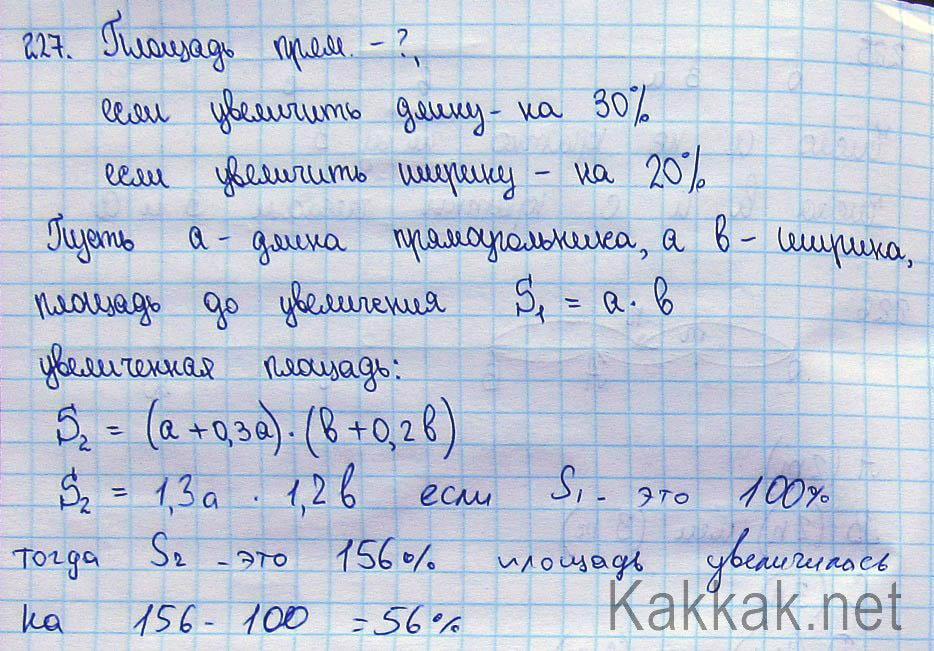 227. Площадь прям. - ?,
если увеличить длину - на 30%
если увеличить ширину - на 20%
Пусть a - длина прямоугольника, а в - ширина,
площадь до увеличения S₁ = a · в
увеличенная площадь:
S₂ = (a + 0,3a) · (в + 0,2в)
S₂ = 1,3a · 1,2в если S₁ - это 100%
тогда S₂ - это 156% площадь увеличилась
на 156 - 100 = 56%
Kakkak.net